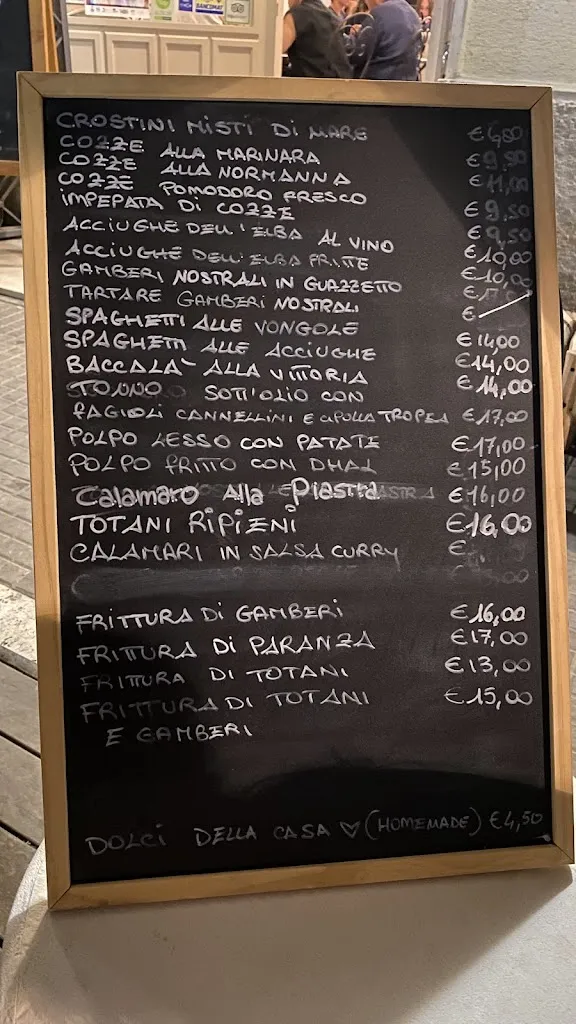 BANCOMAT
CROSTINI MISTI DI MARE € 6,80
COZZE ALLA MARINARA € 9,50
COZZE ALLA NORMANNA € 11,00
COZZE POMODORO FRESCO € 9,50
IMPEPATA DI COZZE € 9,50
ACCIUGHE DELL'ELBA AL VINO € 10,00
ACCIUGHE DELL'ELBA FRITTE € 10,00
GAMBERI NOSTRALI IN GUAZZETTO € 17,00
TARTARE GAMBERI NOSTRALI €
SPAGHETTI ALLE VONGOLE € 14,00
SPAGHETTI ALLE ACCIUGHE € 14,00
BACCALA` ALLA VITTORIA € 14,00
TONNO SOTT'OLIO CON
FAGIOLI CANNELLINI E CIPOLLA TROPEA € 17,00
POLPO LESSO CON PATATE € 17,00
POLPO FRITTO CON DHAL € 15,00
Calamaro Alla Piastra € 16,00
TOTANI RIPIENI € 16,00
CALAMARI IN SALSA CURRY €
FRITTURA DI GAMBERI € 16,00
FRITTURA DI PARANZA € 17,00
FRITTURA DI TOTANI € 13,00
FRITTURA DI TOTANI € 15,00
E GAMBERI
DOLCI DELLA CASA ♡ (HOMEMADE) € 4,50